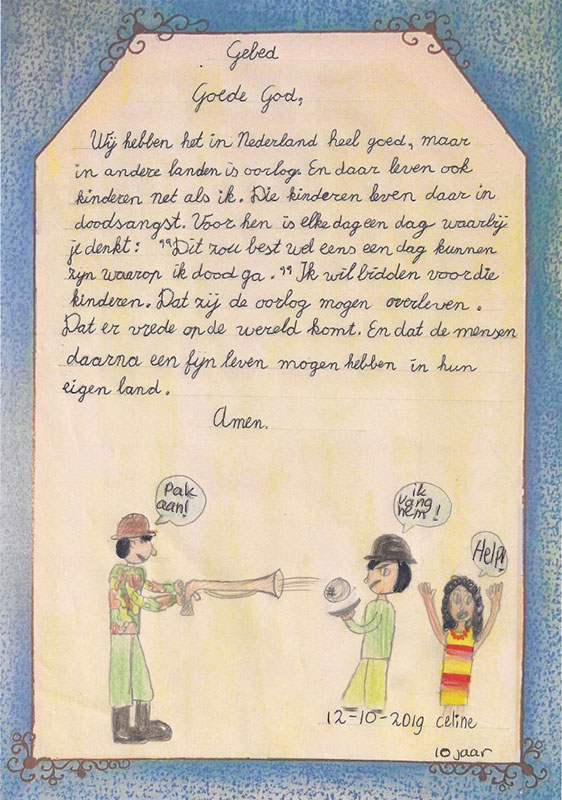 Gebed
Goede God,
Wij hebben het in Nederland heel goed, maar
in andere landen is oorlog. En daar leven ook
kinderen net als ik. Die kinderen leven daar in
doodsangst. Voor hen is elke dag een dag waarbij
je denkt: "Dit zou best wel eens een dag kunnen
zijn waarop ik dood ga." Ik wil bidden voor die
kinderen. Dat zij de oorlog mogen overleven.
Dat er vrede op de wereld komt. En dat de mensen
daarna een fijn leven mogen hebben in hun
eigen land.
Amen.
Pak
aan!
ik
vang
hem!
Help!
12-10-2019 celine
10 jaar